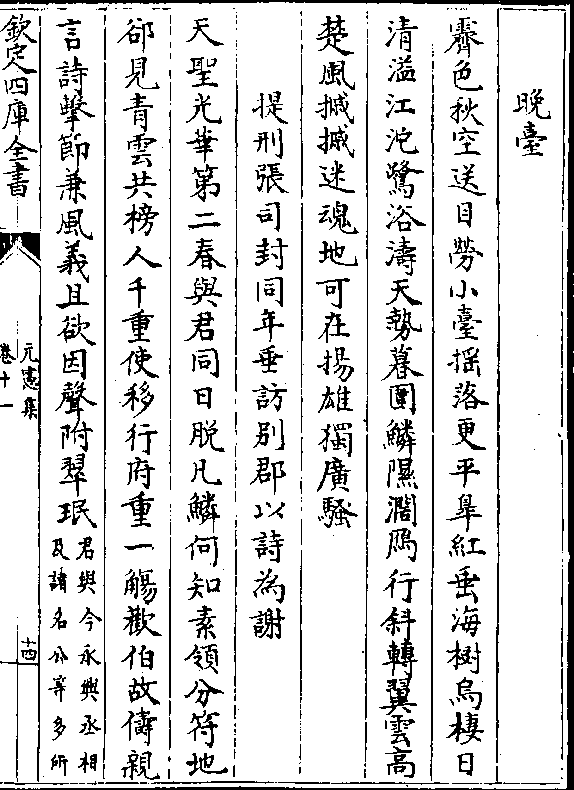 晚臺
霽色秋空送目勞小臺揺落更平臯紅垂海樹烏棲日
清溢江沱鷺浴濤天勢暮圍鱗隰濶鴈行斜轉翼雲高
楚風摵摵迷魂地可在揚雄獨廣騷
提刑張司封同年垂訪别郡以詩為謝
天聖光華第二春與君同日脱凡鱗何知素領分符地
卻見青雲共榜人千重使移行府重一觴歡伯故儔親
言詩擊節兼風義且欲因聲附翠珉君與今永興丞相
及諸名公等多所
欽定四庫全書
元憲集
卷十一
十四